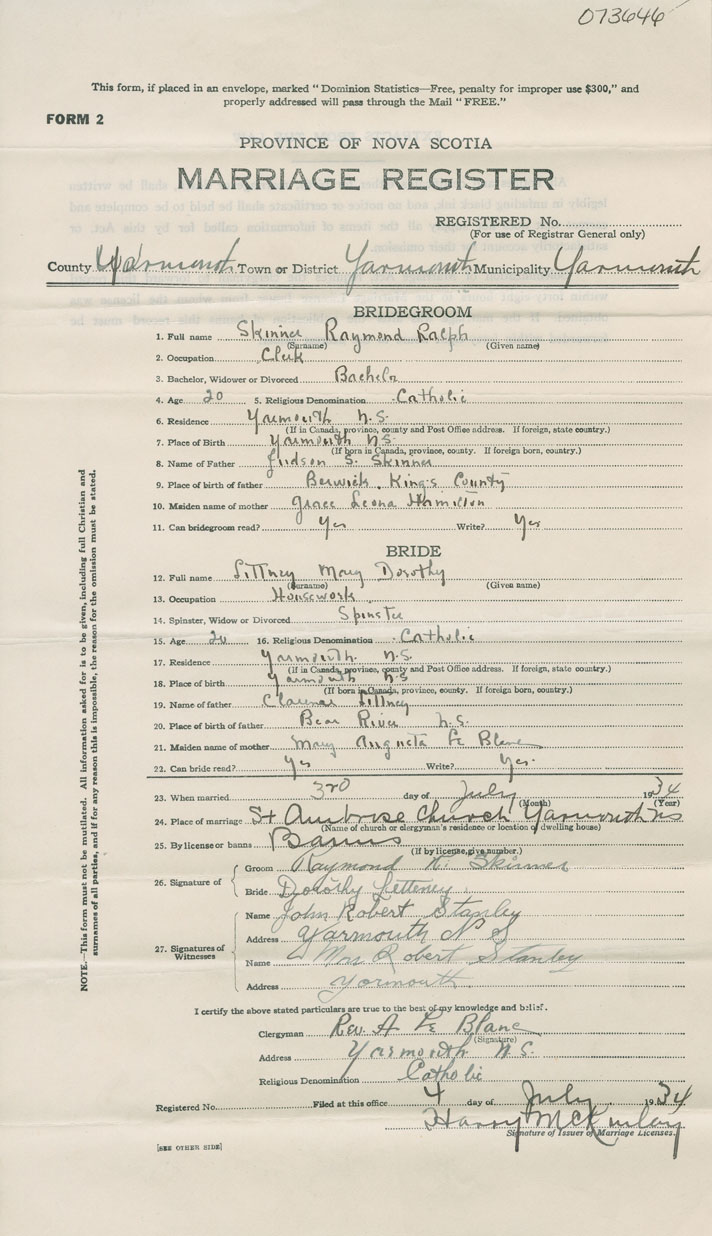 073646
This form, if placed in an envelope, marked "Dominion Statistics—Free, penalty for improper use $300," and
properly addressed will pass through the Mail "FREE."
FORM 2
PROVINCE OF NOVA SCOTIA
MARRIAGE REGISTER
REGISTERED No.
(For use of Registrar General only)
County Yarmouth Town or District Yarmouth Municipality Yarmouth
BRIDEGROOM
1. Full name Skinner Raymond Ralph
(Surname) (Given name)
2. Occupation Clerk
3. Bachelor, Widower or Divorced Bachelor
4. Age 20 5. Religious Denomination Catholic
6. Residence Yarmouth N.S.
(If in Canada, province, county and Post Office address. If foreign, state country.)
7. Place of Birth Yarmouth N.S.
(If born in Canada, province, county. If foreign born, country.)
8. Name of Father Judson S. Skinner
9. Place of birth of father Berwick, Kings County
10. Maiden name of mother Grace Leona Hamilton
11. Can bridegroom read? Yes Write? Yes
BRIDE
12. Full name Littney Mary Dorothy
(Surname) (Given name)
13. Occupation Housework
14. Spinster, Widow or Divorced Spinster
15. Age 20 16. Religious Denomination Catholic
17. Residence Yarmouth N.S.
(If in Canada, province, county and Post Office address. If foreign, state country.)
18. Place of birth Yarmouth N.S
(If born in Canada, province, county. If foreign born, country.)
19. Name of father Clarence Littney
20. Place of birth of father Bear River N.S.
21. Maiden name of mother Mary Augusta Le Blanc
22. Can bride read? Yes Write? Yes.
23. When married 3rd day of July 1934
(Month) (Year)
24. Place of marriage St Ambrose Church Yarmouth NS
(Name of church or clergyman's residence or location of dwelling house)
25. By license or banns Banns
(If by license, give number.)
26. Signature of Groom Raymond R. Skinner
Bride Dorothy Letteney.
27. Signatures of Witnesses Name John Robert Stanley
Address Yarmouth N S
Name Mrs Robert Stanley
Address Yarmouth
I certify the above stated particulars are true to the best of my knowledge and belief.
Clergyman Rev. A Le Blanc
(Signature)
Address Yarmouth N.S.
Religious Denomination Catholic
Registered No. Filed at this office 4 day of July 1934
Harry McKinley
Signature of Issuer of Marriage Licenses.
[SEE OTHER SIDE]
NOTE.—This form must not be mutilated. All information asked for is to be given, including full Christian and
surnames of all parties, and if for any reason this is impossible, the reason for the omission must be stated.